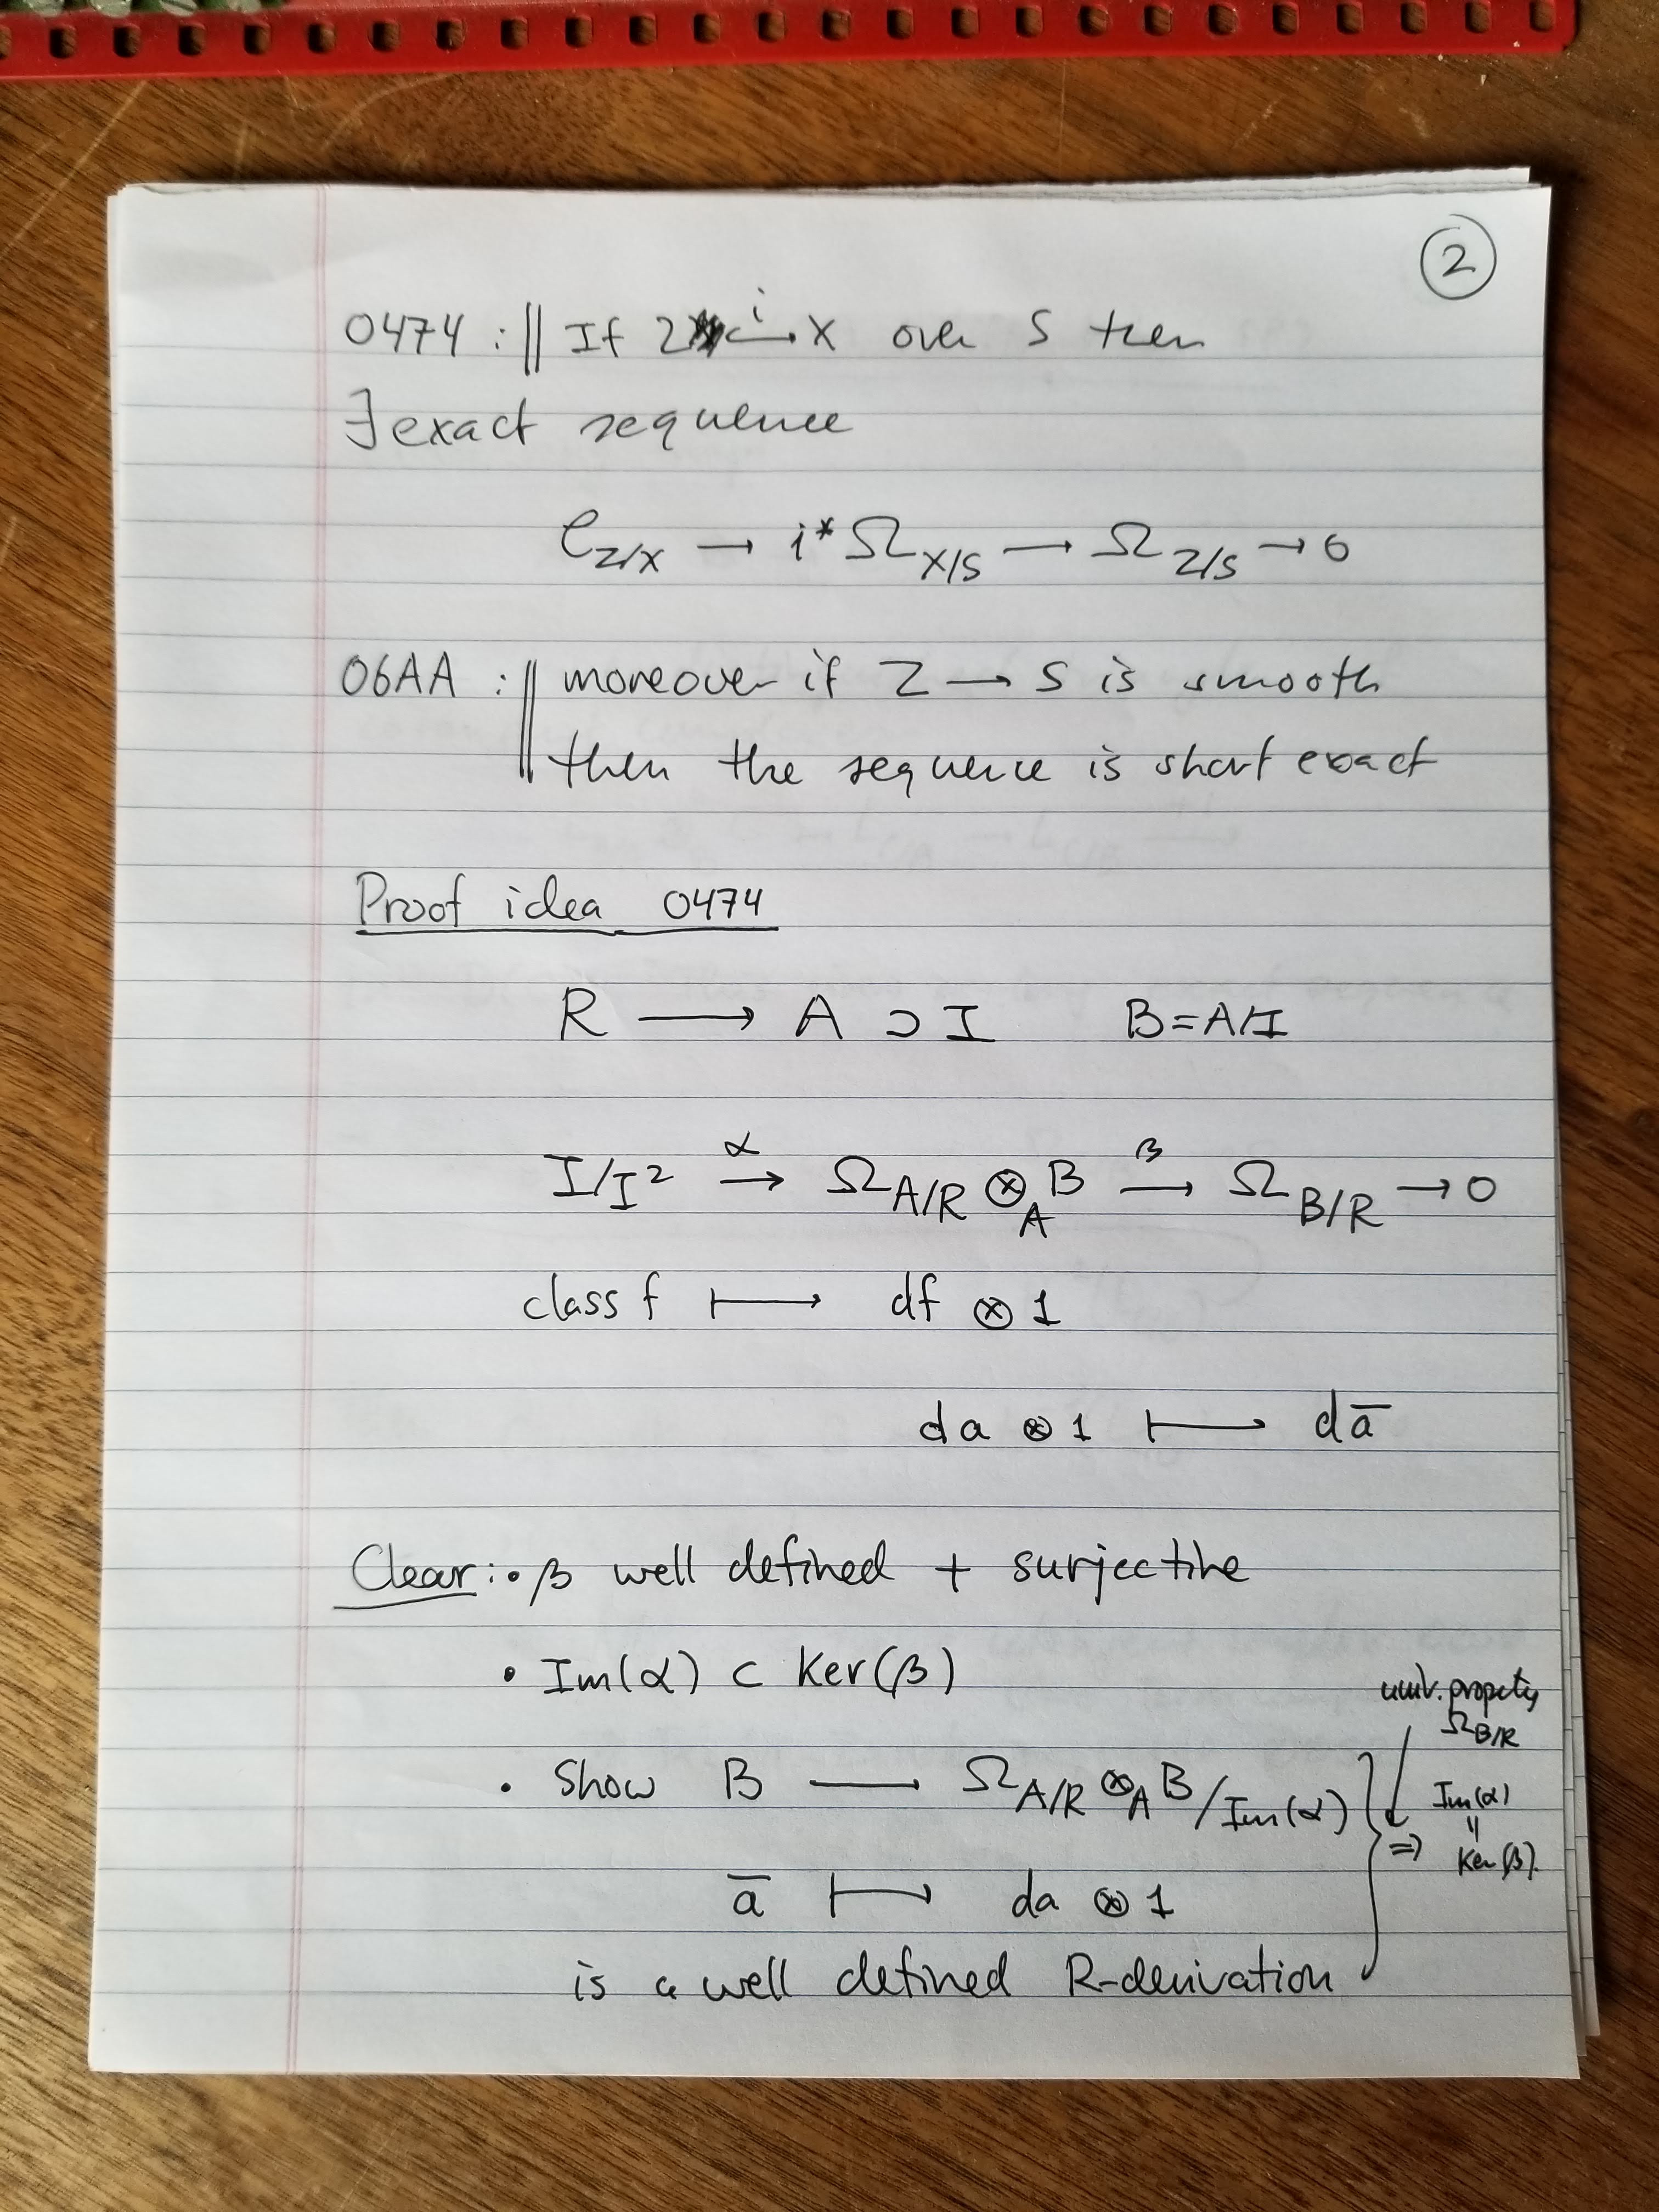 ②
0474 : || If Z ⟵ⁱ→ X over S then
∃ exact sequence
𝒞_{Z/X} → i^* Ω_{X/S} → Ω_{Z/S} → 0
06AA : || moreover if Z → S is smooth
then the sequence is short exact
Proof idea 0474
R → A ⊃ I B = A/I
I/I² →^α Ω_{A/R} ⊗_A B →^β Ω_{B/R} → 0
class f ↦ df ⊗ 1
da ⊗ 1 ↦ dā
Clear: • β well defined + surjective
• Im(α) ⊂ Ker(β)
univ. property
Ω_{B/R}
• Show B → Ω_{A/R} ⊗_A B / Im(α) } ⇒ Im(α) = Ker(β).
ā ↦ da ⊗ 1
is a well defined R-derivation